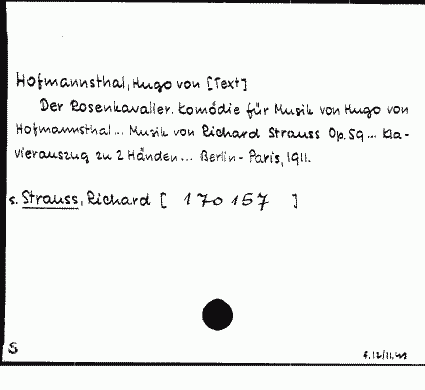 Hofmannsthal, Hugo von [Text]
Der Rosenkavalier. Komödie für Musik von Hugo von
Hofmannsthal... Musik von Richard Strauss Op. 59... Kla-
vierauszug zu 2 Händen... Berlin - Paris, 1911.
s. Strauss, Richard [ 170 157 ]
S